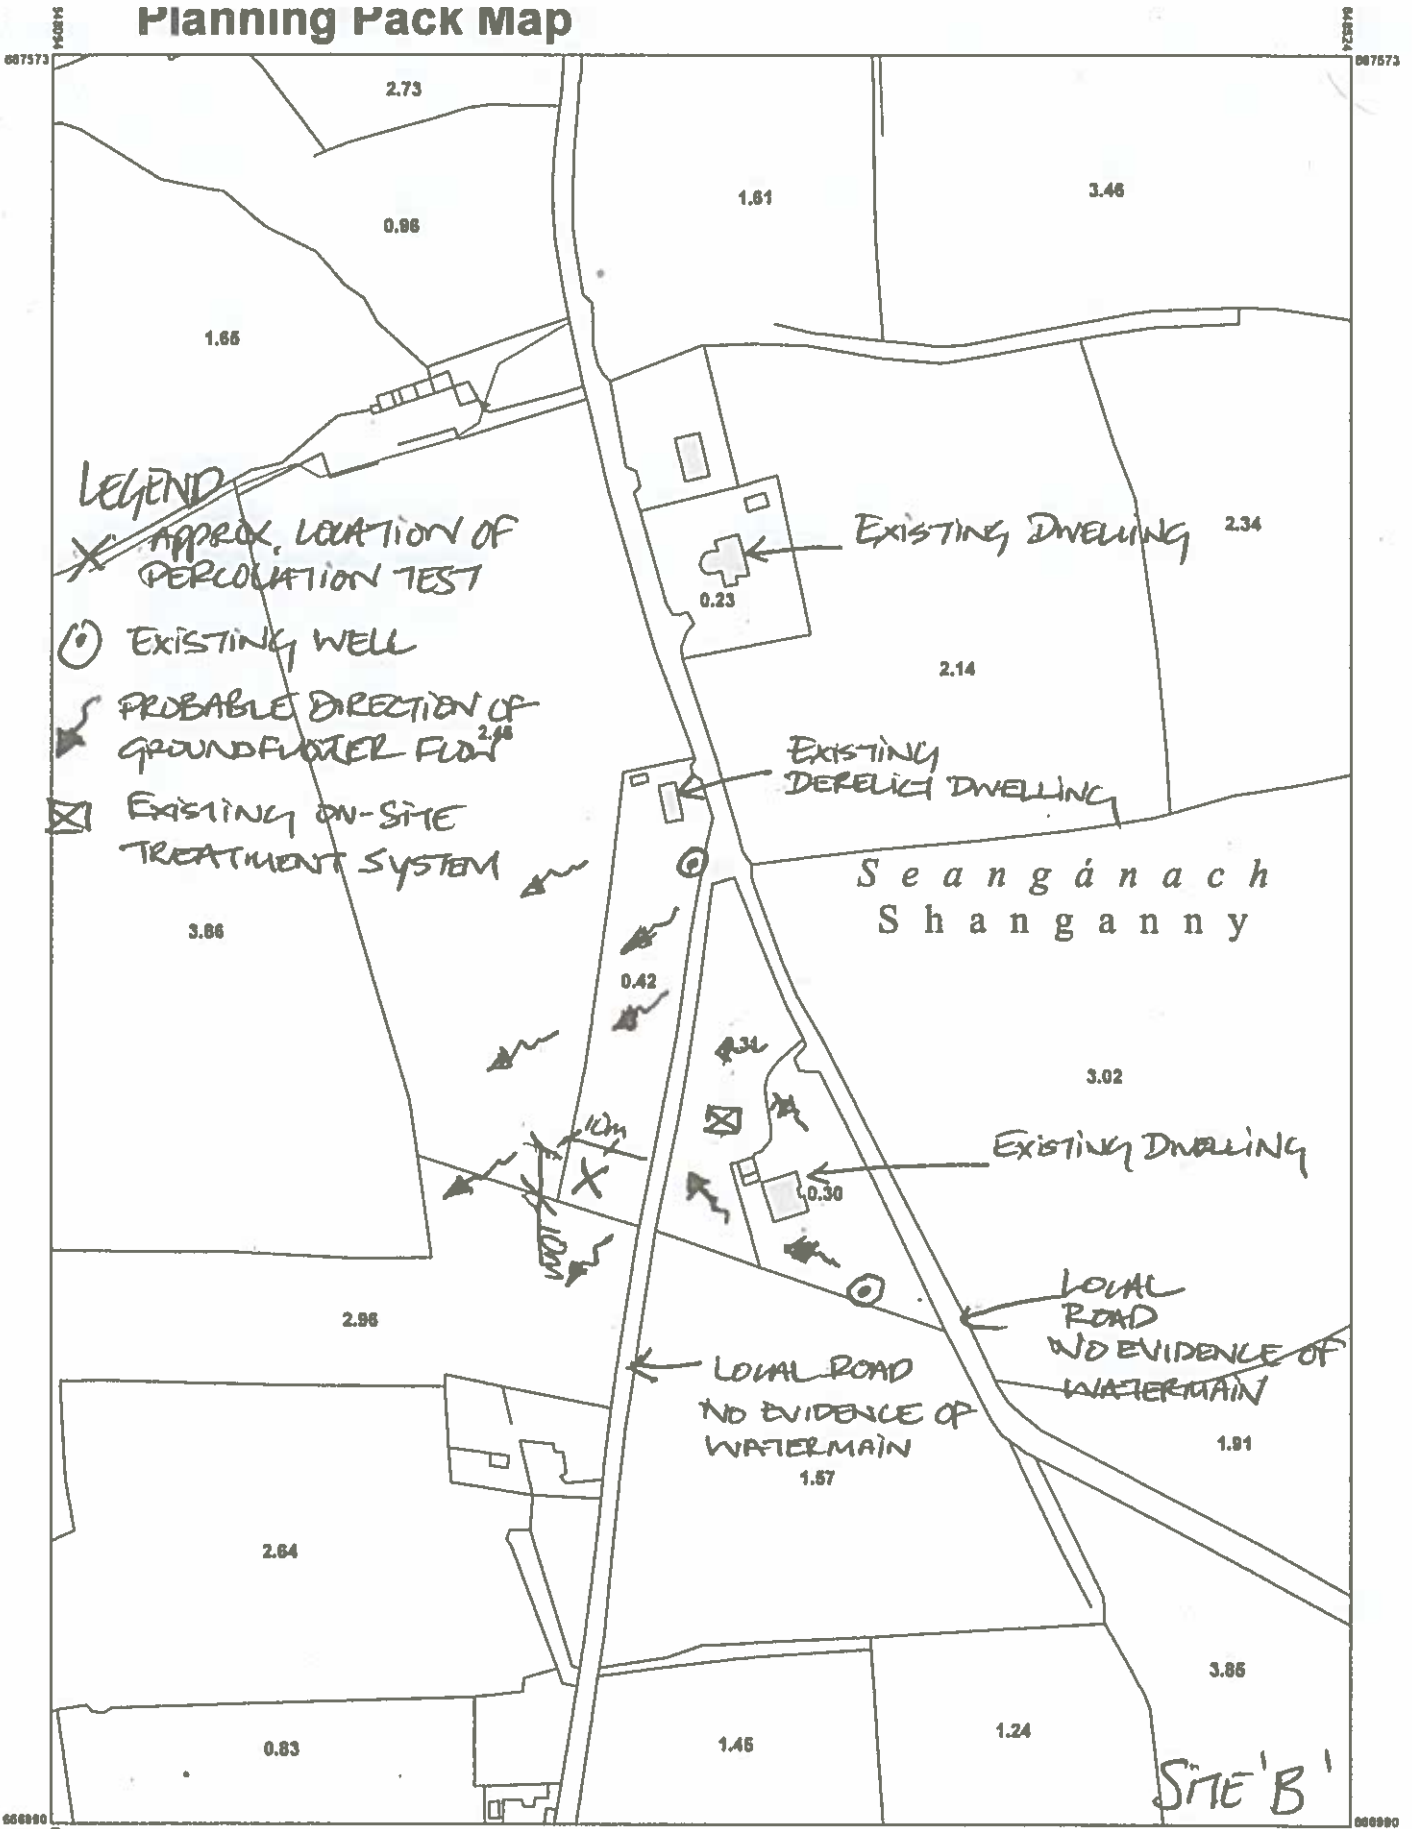 Planning Pack Map
2.73
1.61
3.46
0.96
1.65
LEGEND
APPROX. LOCATION OF
PERCOLATION TEST
EXISTING WELL
PROBABLE DIRECTION OF
GROUNDFWATER FLOW
2.46
EXISTING ON-SITE
TREATMENT SYSTEM
EXISTING DWELLING
2.34
0.23
2.14
EXISTING
DERELICT DWELLING
Seangánach
Shanganny
3.86
0.42
0.31
3.02
10m
EXISTING DWELLING
0.30
10m
2.96
LOCAL
ROAD
NO EVIDENCE OF
WATERMAIN
LOCAL ROAD
NO EVIDENCE OF
WATERMAIN
1.57
1.91
2.64
3.85
0.83
1.45
1.24
SITE 'B'